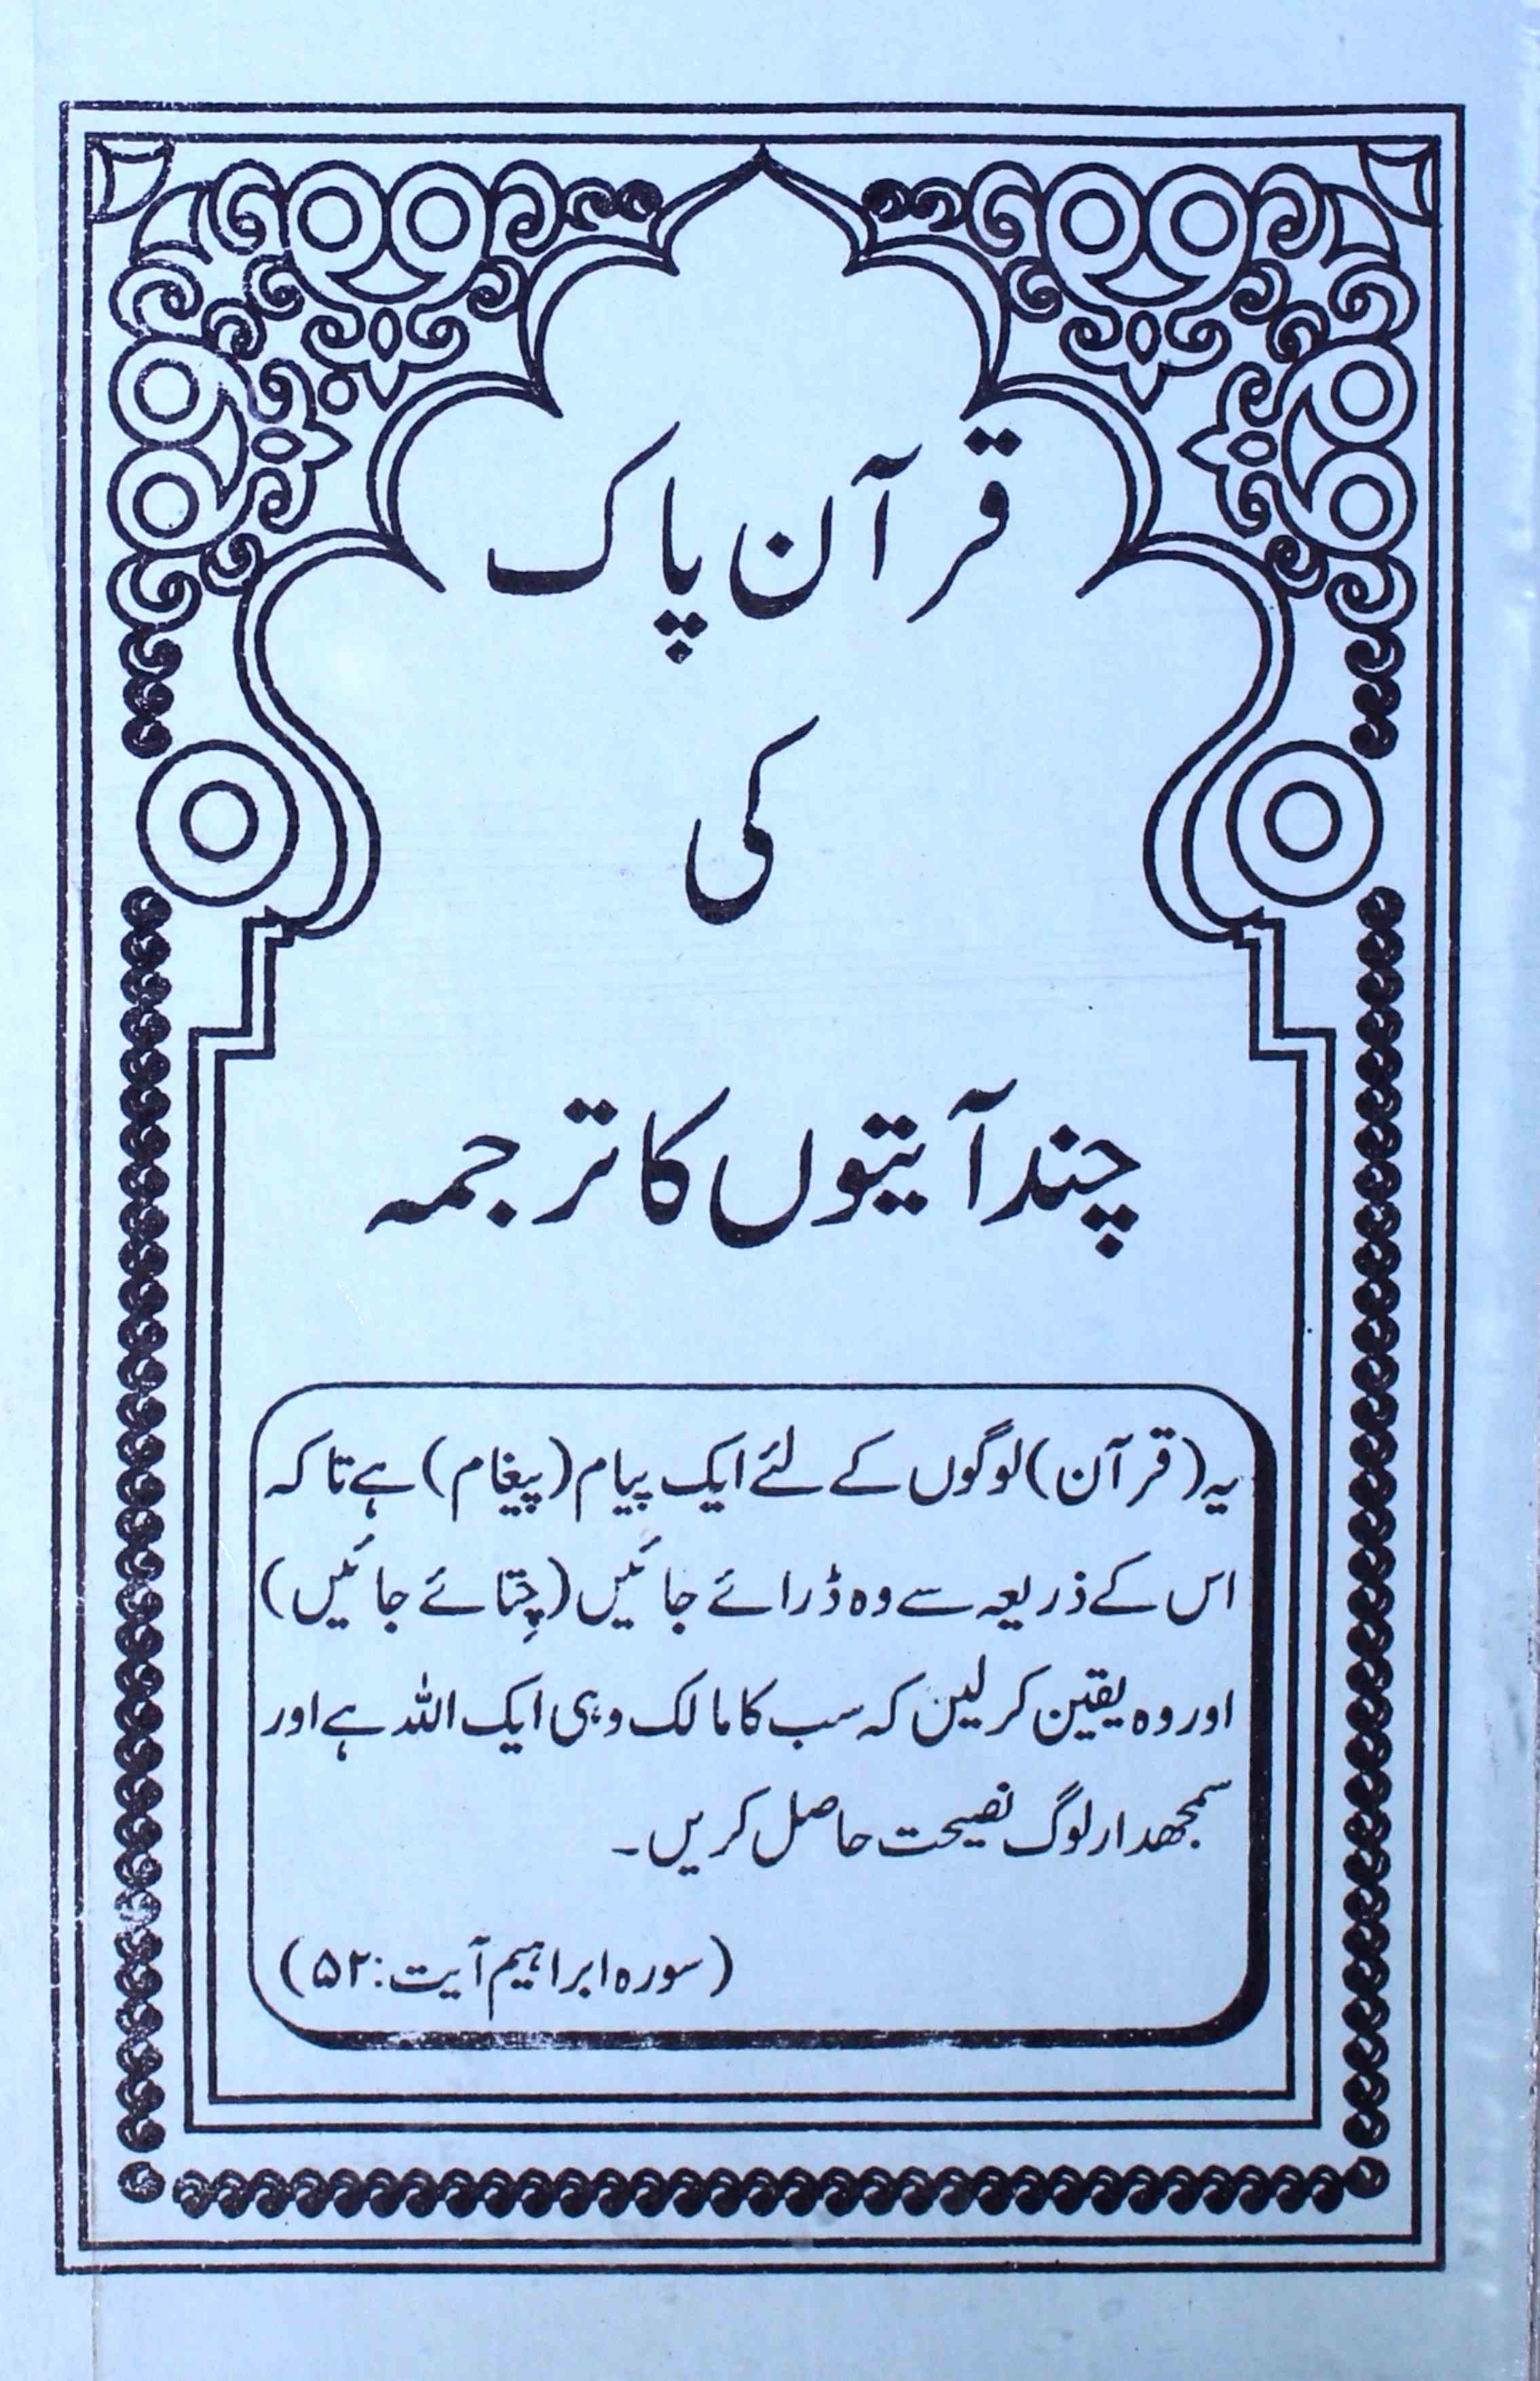 قرآن پاک
کی
چند آیتوں کا ترجمہ
یہ (قرآن) لوگوں کے لئے ایک پیام (پیغام) ہے تا کہ
اس کے ذریعہ سے وہ ڈرائے جائیں (چِتائے جائیں)
اور وہ یقین کر لیں کہ سب کا مالک وہی ایک اللہ ہے اور
سمجھدار لوگ نصیحت حاصل کریں۔
(سورہ ابراہیم آیت: ۵۲)